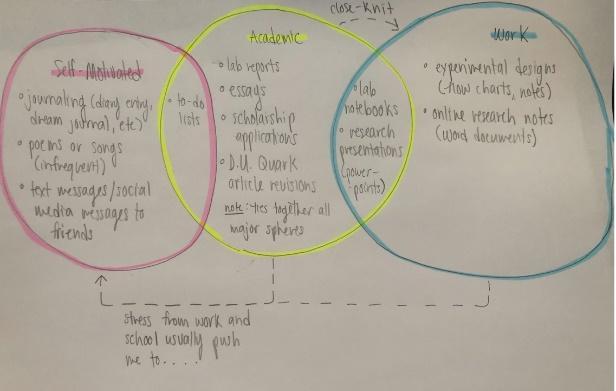 close-knit
Academic
Work
Self-Motivated
• journaling (diary entry,
dream journal, etc)
• poems or songs
(infrequent)
• text messages/social
media messages to
friends
• to-do
lists
• lab reports
• essays
• scholarship
applications
• D.U. Quark
article revisions
note: ties together all
major spheres
• lab
notebooks
• research
presentations
(power-
points)
• experimental designs
(flow charts, notes)
• online research notes
(word documents)
stress from work and
school usually push
me to.....